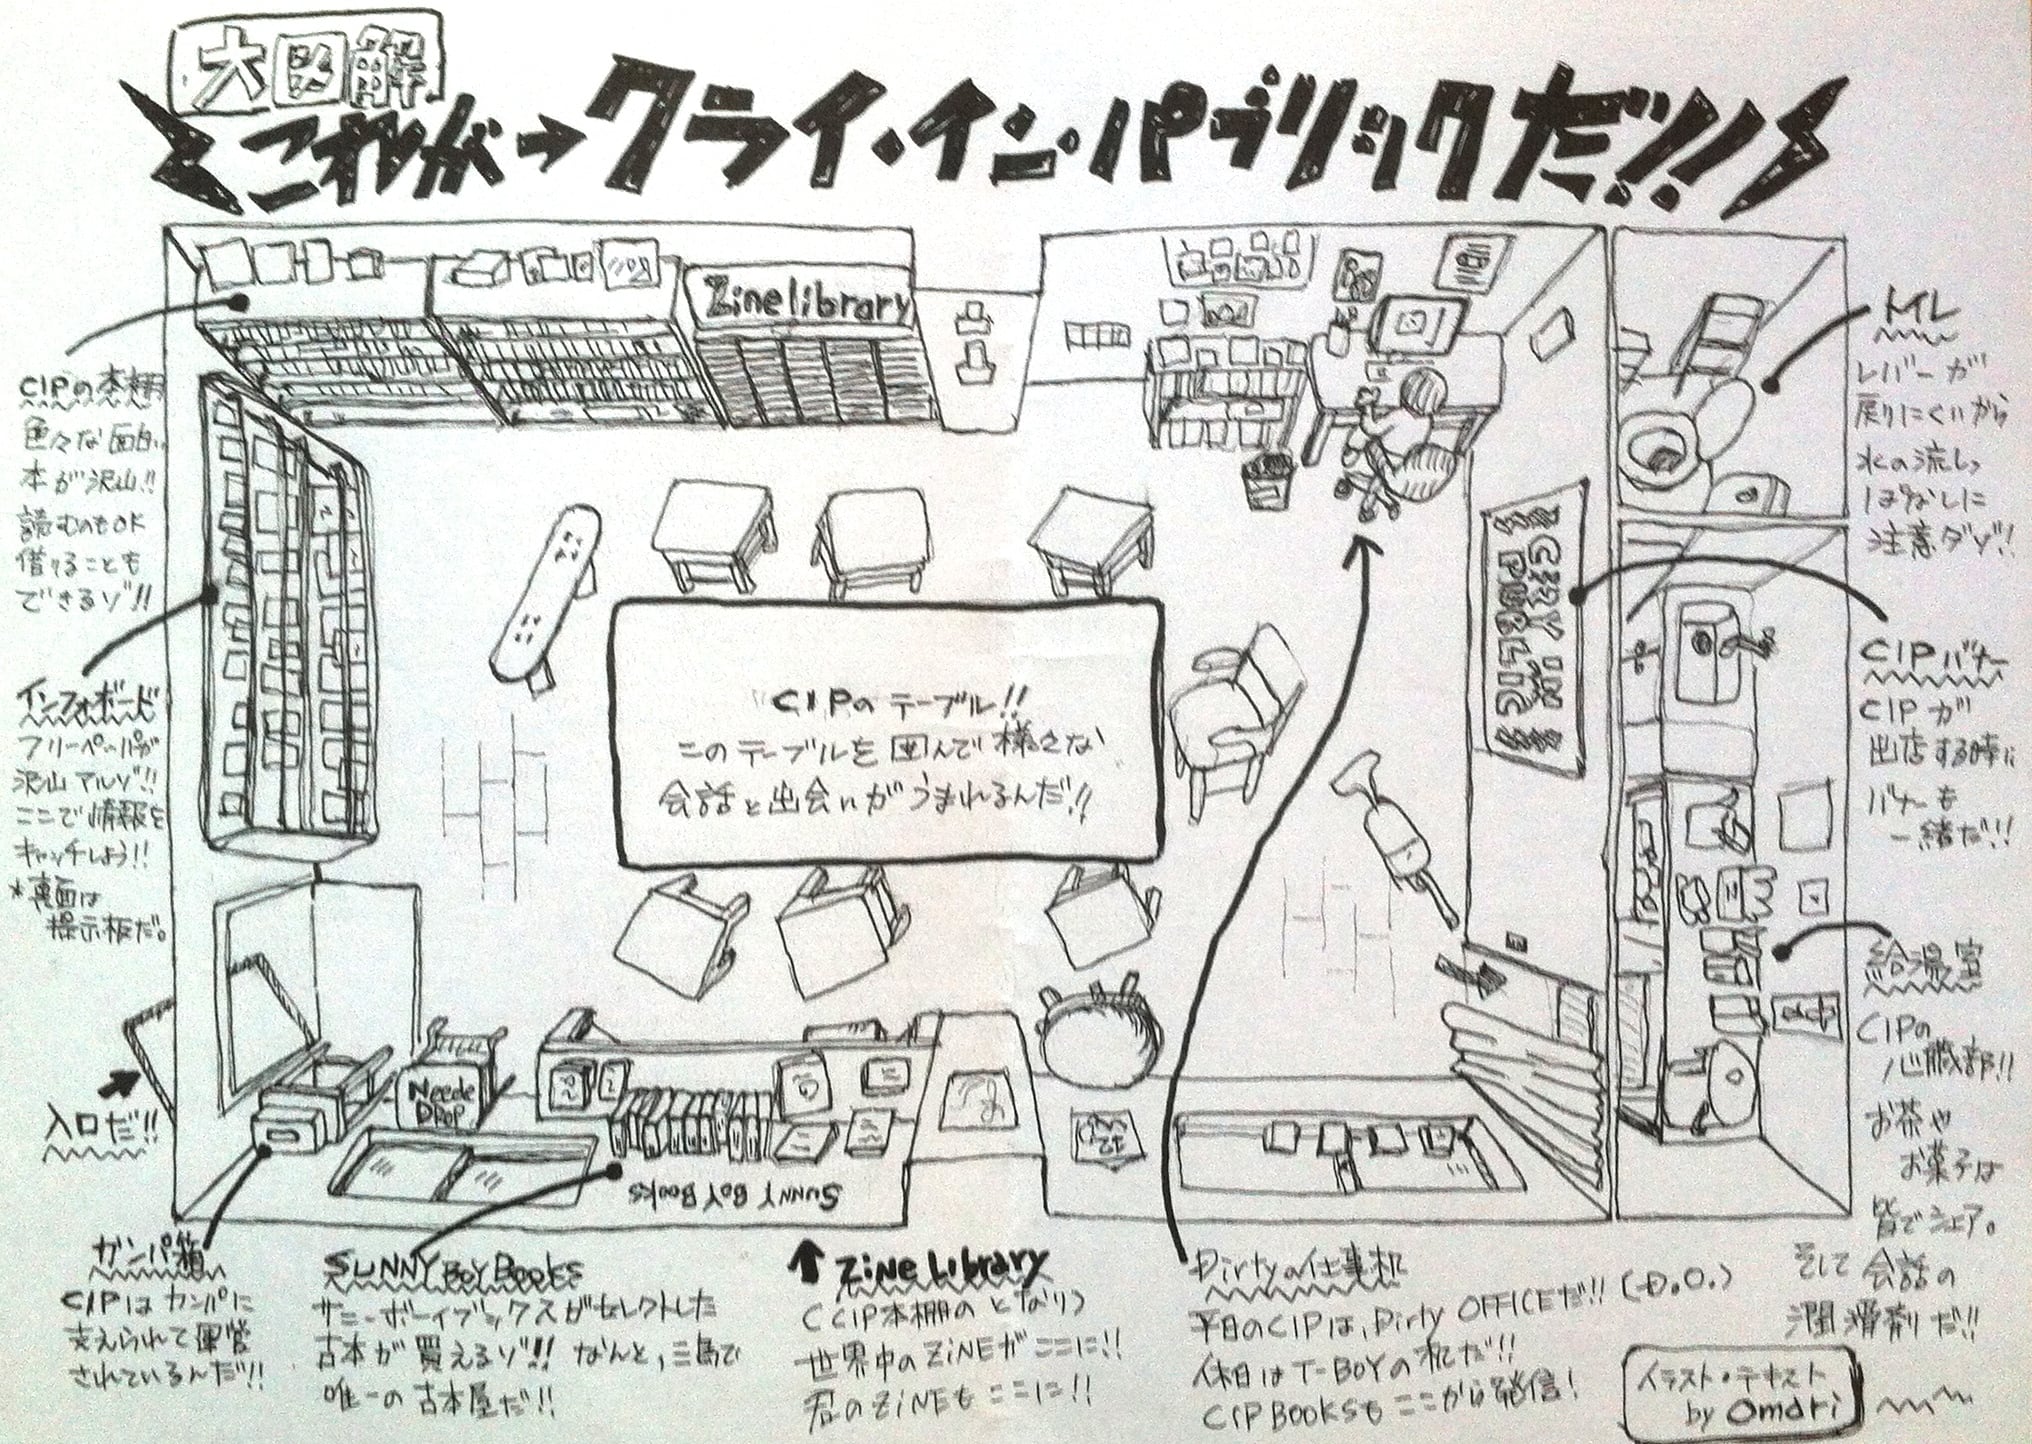 大図解
これが→クライ・イン・パブリックだ!!
Zine library
CIPの本棚
色々な面白い
本が沢山!!
読むのもOK
借りることも
できるゾ!!
インフォボード
フリーペーパーが
沢山アルゾ!!
ここで情報を
キャッチしよう!!
*裏面は
掲示板だ。
入口だ!!
"CIPのテーブル!!
このテーブルを囲んで様々な
会話と出会いがうまれるんだ!!
CRY IN
PUBLIC
トイレ
レバーが
戻りにくいから
水の流しっ
ぱなしに
注意ダゾ!!
CIPバナー
CIPが
出店する時に
バナーも
一緒だ!!
給湯室
CIPの
心臓部!!
お茶や
お菓子は
皆でシェア。
そして会話の
潤滑剤だ!!
Neede
DROP
SUNNY BOY BOOKS
カンパ箱
CIPはカンパに
支えられて運営
されているんだ!!
SUNNY BOY BOOKS
サニーボーイブックスがセレクトした
古本が買えるゾ!! なんと,三島で
唯一の古本屋だ!!
↑ ZiNE LibrARY
(CIP本棚のとなり)
世界中のZiNEがここに!!
君のZiNEもここに!!
Dirtyの仕事机
平日のCIPは, Dirty OFFICEだ!! (D.O.)
休日はT-BOYの机だ!!
CIP BOOKSもここから発信!
イラスト・テキスト
by Omari